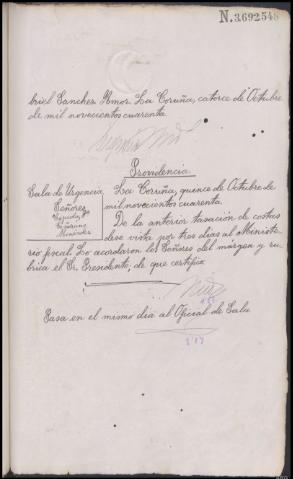 N.3692548
briel Sanchez Nmor. La Coruña, catorce de Octubre
de mil novecientos cuarenta.
Providencia
Sala de Urgencia
Señores
La Coruña, quince de Octubre de
mil novecientos cuarenta.
De la anterior tasación de costas
dese vista por tres dias al Ministe
rio fiscal. Lo acordaron los Señores del márgen y ru-
brica el Sr. Presidente, de que certifico
Pasa en el mismo dia al Oficial de Sala